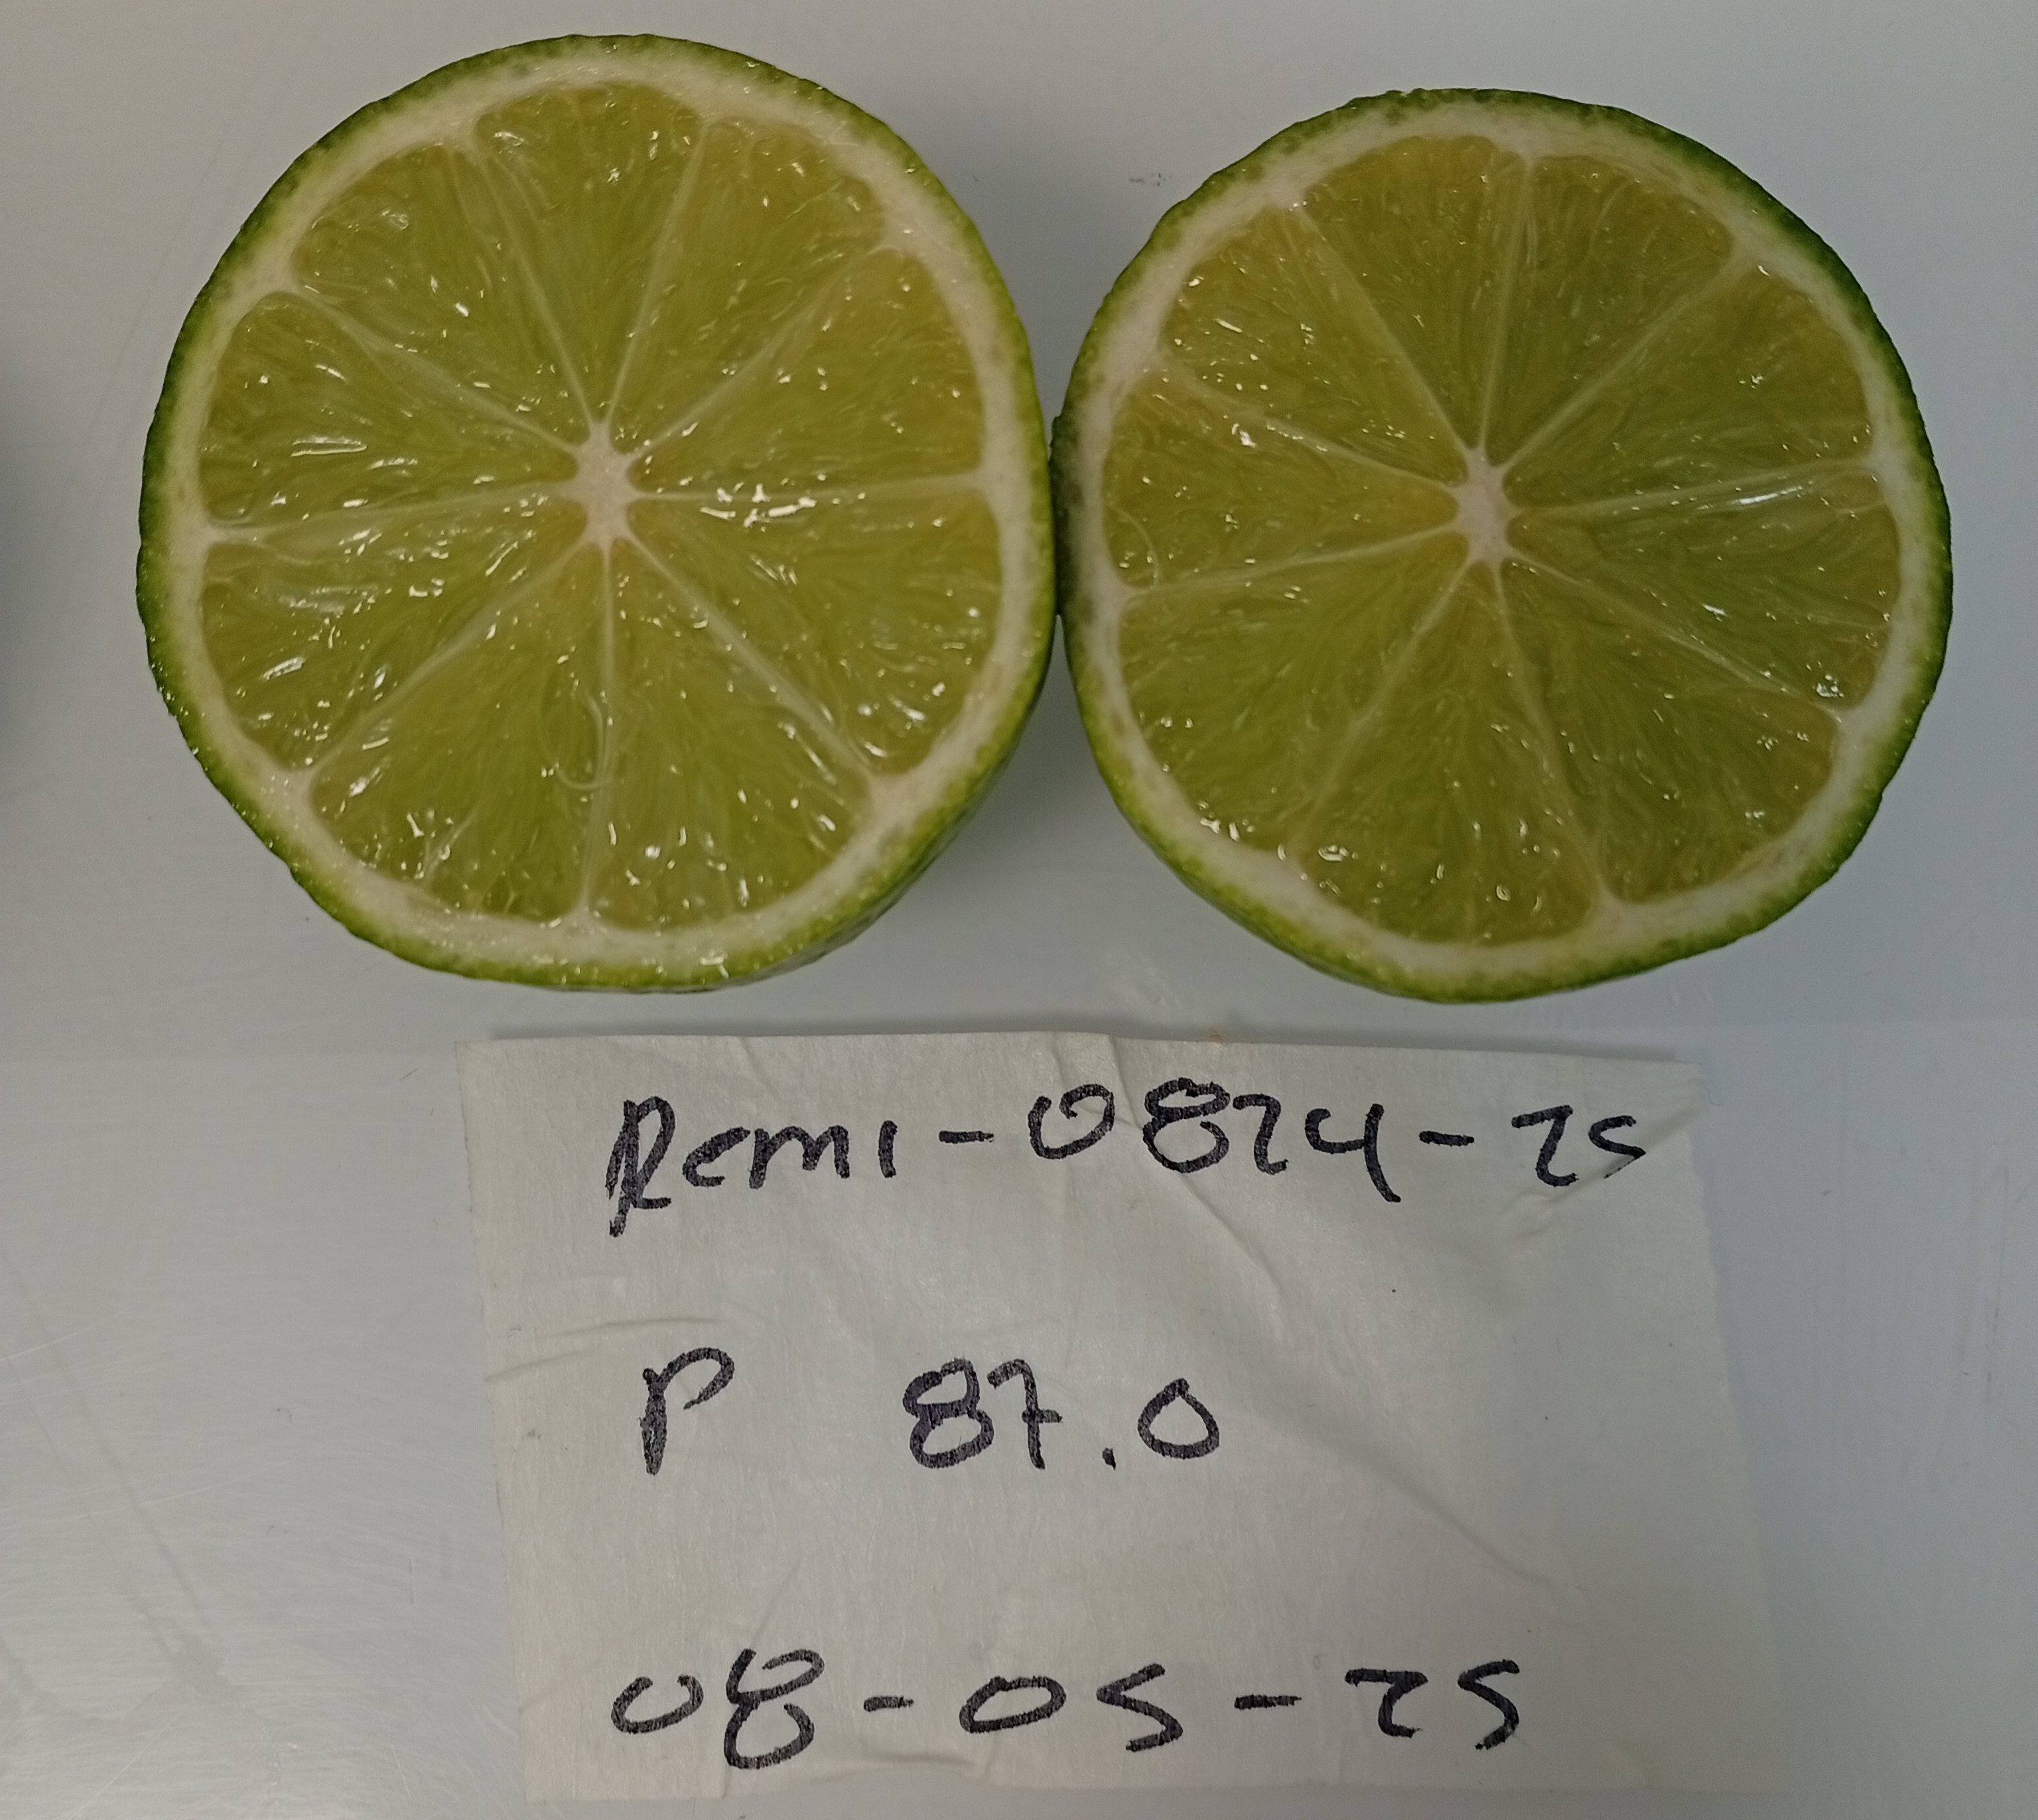 Remi-0824-25
P 87.0
08-05-25